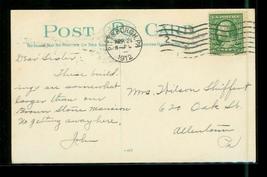 POST CARD
PITTSBURGH, PA
1912
Dear Sister:
These build-
ings are somewhat
larger than our
Brown Stone Mansion
No getting away here,
John
Mrs. Wilson Shiffert
620 Oak St.
Allentown
Pa